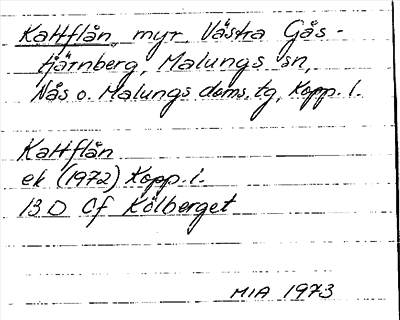 Kattflån, myr, Västra Gås-
tjärnberg, Malungs sn,
Nås o. Malungs doms.tg, Kopp. l.
Kattflån
ek (1972) Kopp. l.
13D 0f Kölberget
MIA 1973